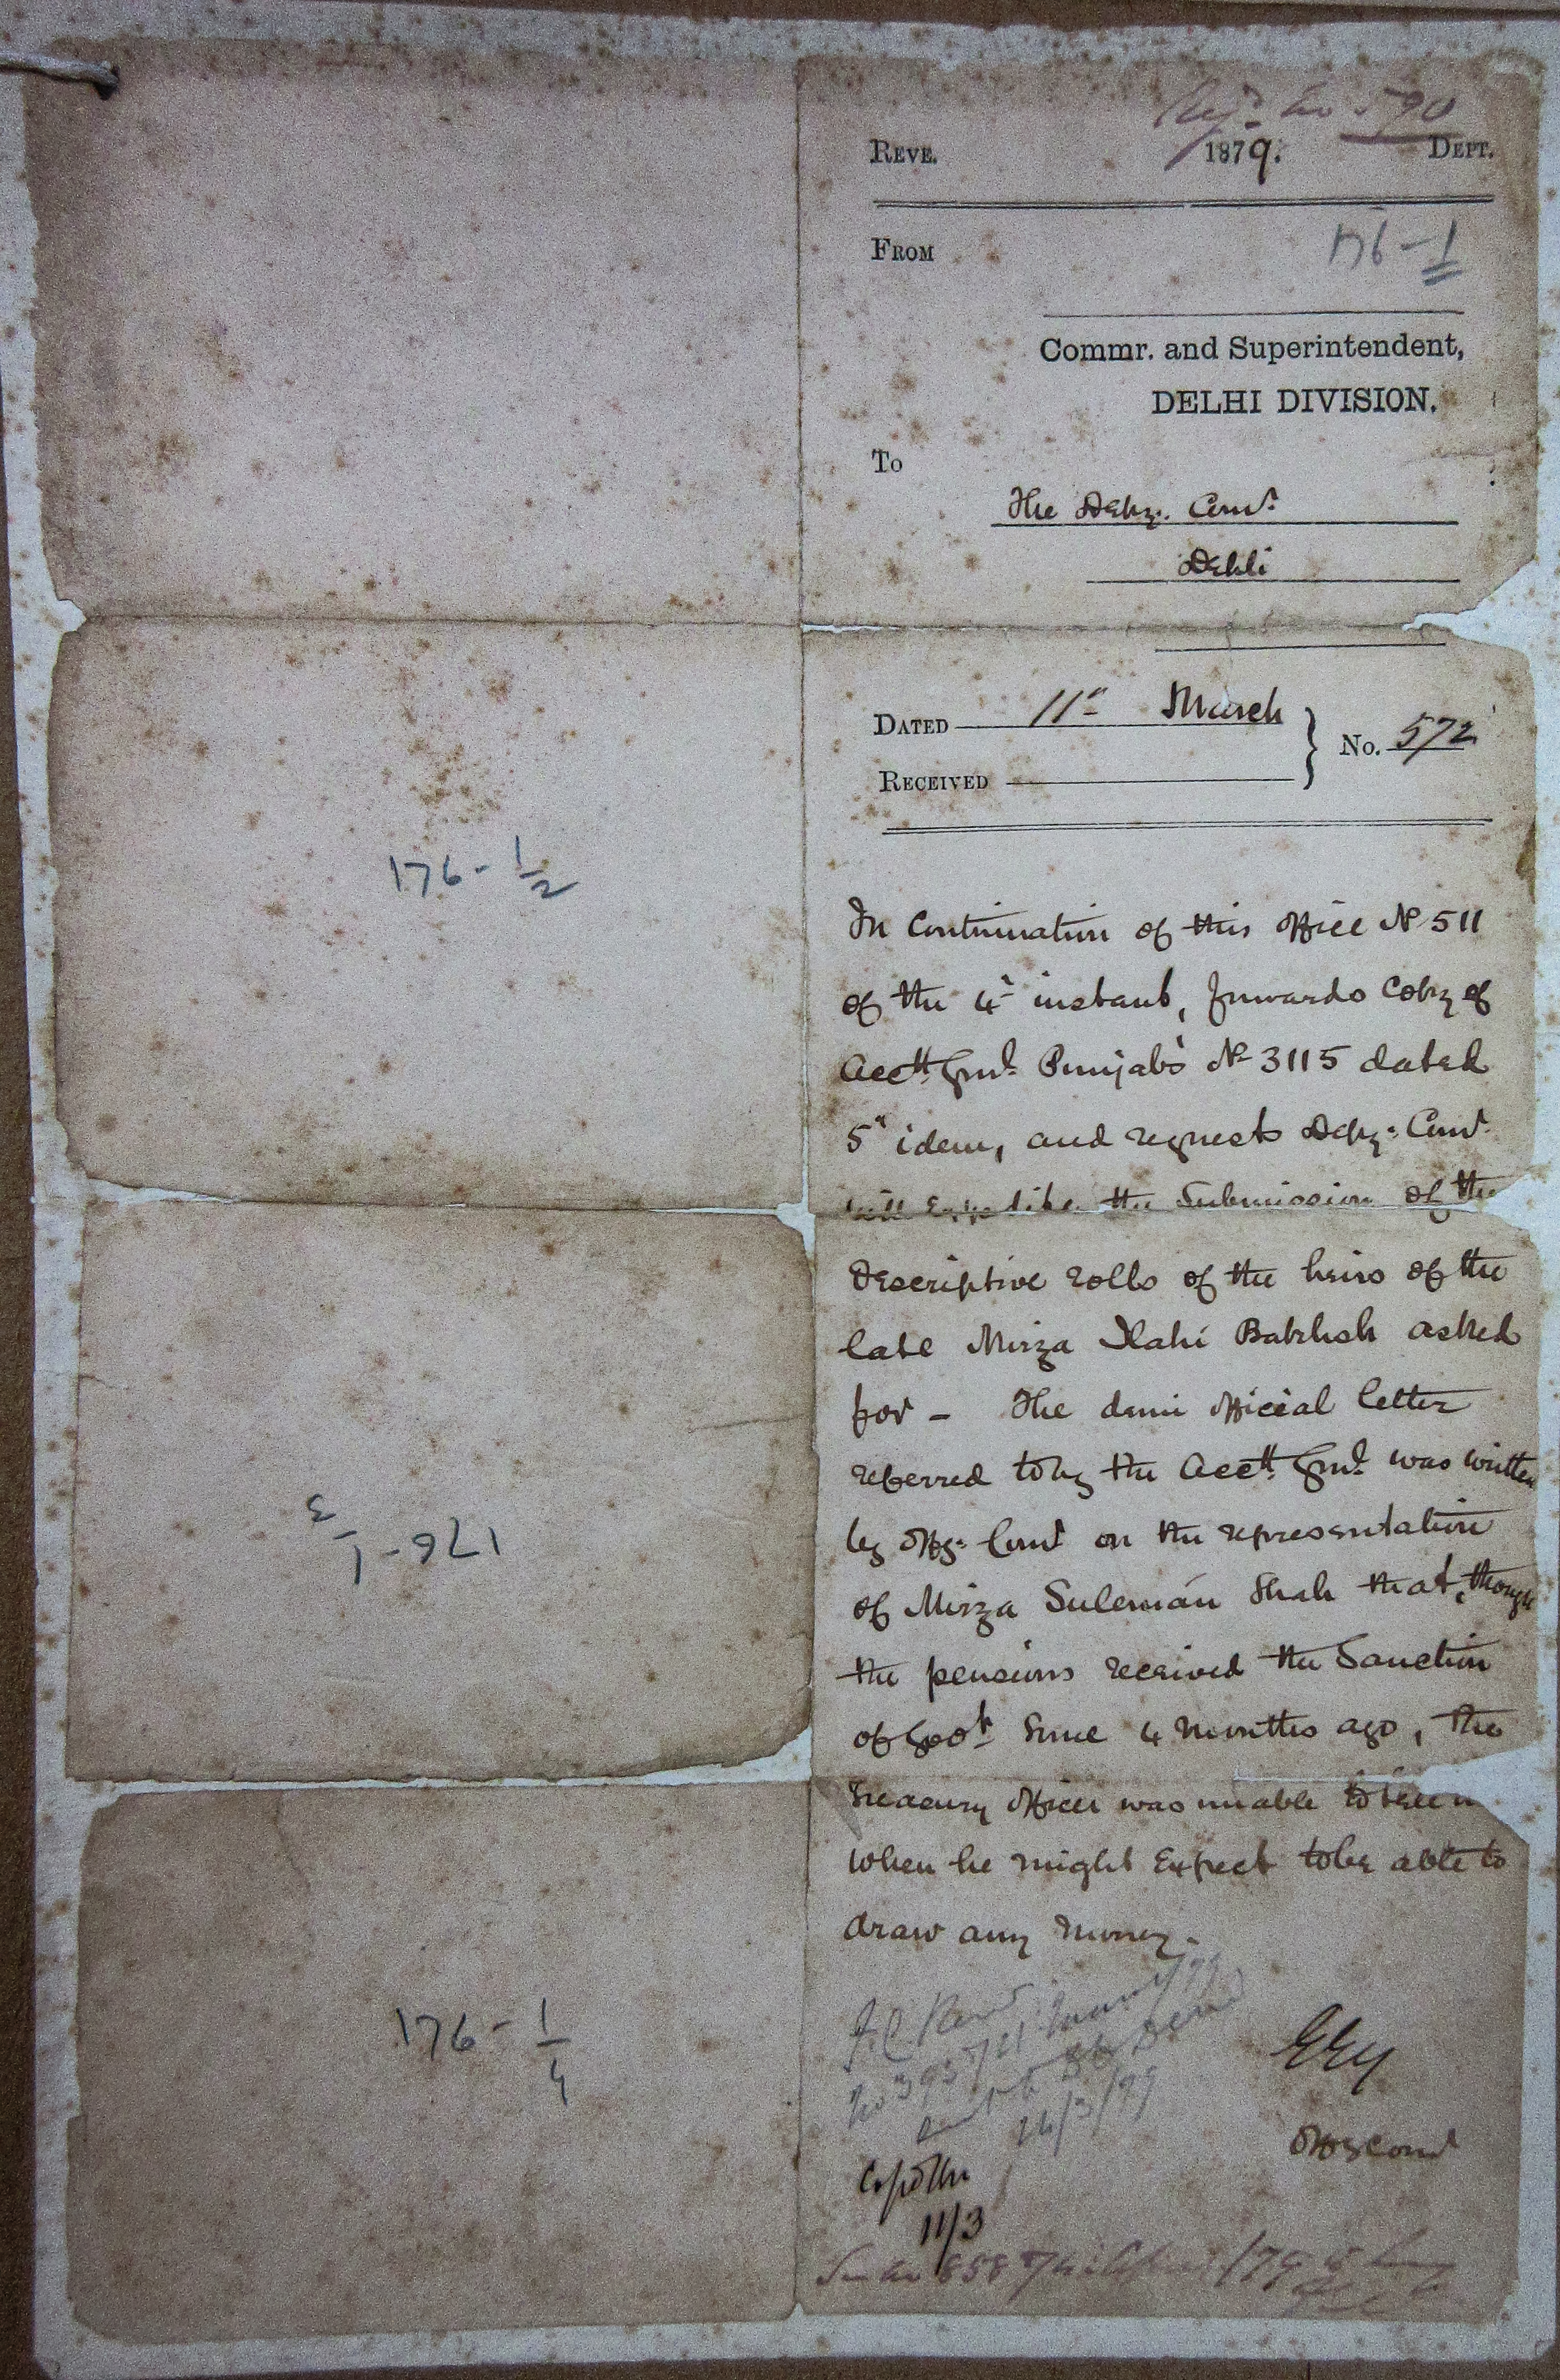 Regd. No 590
REVE. 1879. DEPT.
FROM
176-1
Commr. and Superintendent,
DELHI DIVISION.
To
The Depy. Comr.
Dehli
DATED 11th March
No. 572
RECEIVED
176-1/2
In Continuation of this Office No 511
of the 4th instant, forwards Copy of
Acctt. Genl. Punjab's No 3115 dated
5th idem, and requests Depy: Comr.
will Expedite the Submission of the
descriptive rolls of the heirs of the
late Mirza Ilahi Bakhsh asked
for - The demi official letter
referred to by the Acctt. Genl. was written
by Offg: Comr on the representation
of Mirza Sulemán Shah that, though
the pensions received the Sanction
of Govt. Some 4 months ago, the
Treasury Officer was unable to tell him
when he might Expect to be able to
draw any money.
176-1/3
176-1/4
Offg Comr
11/3